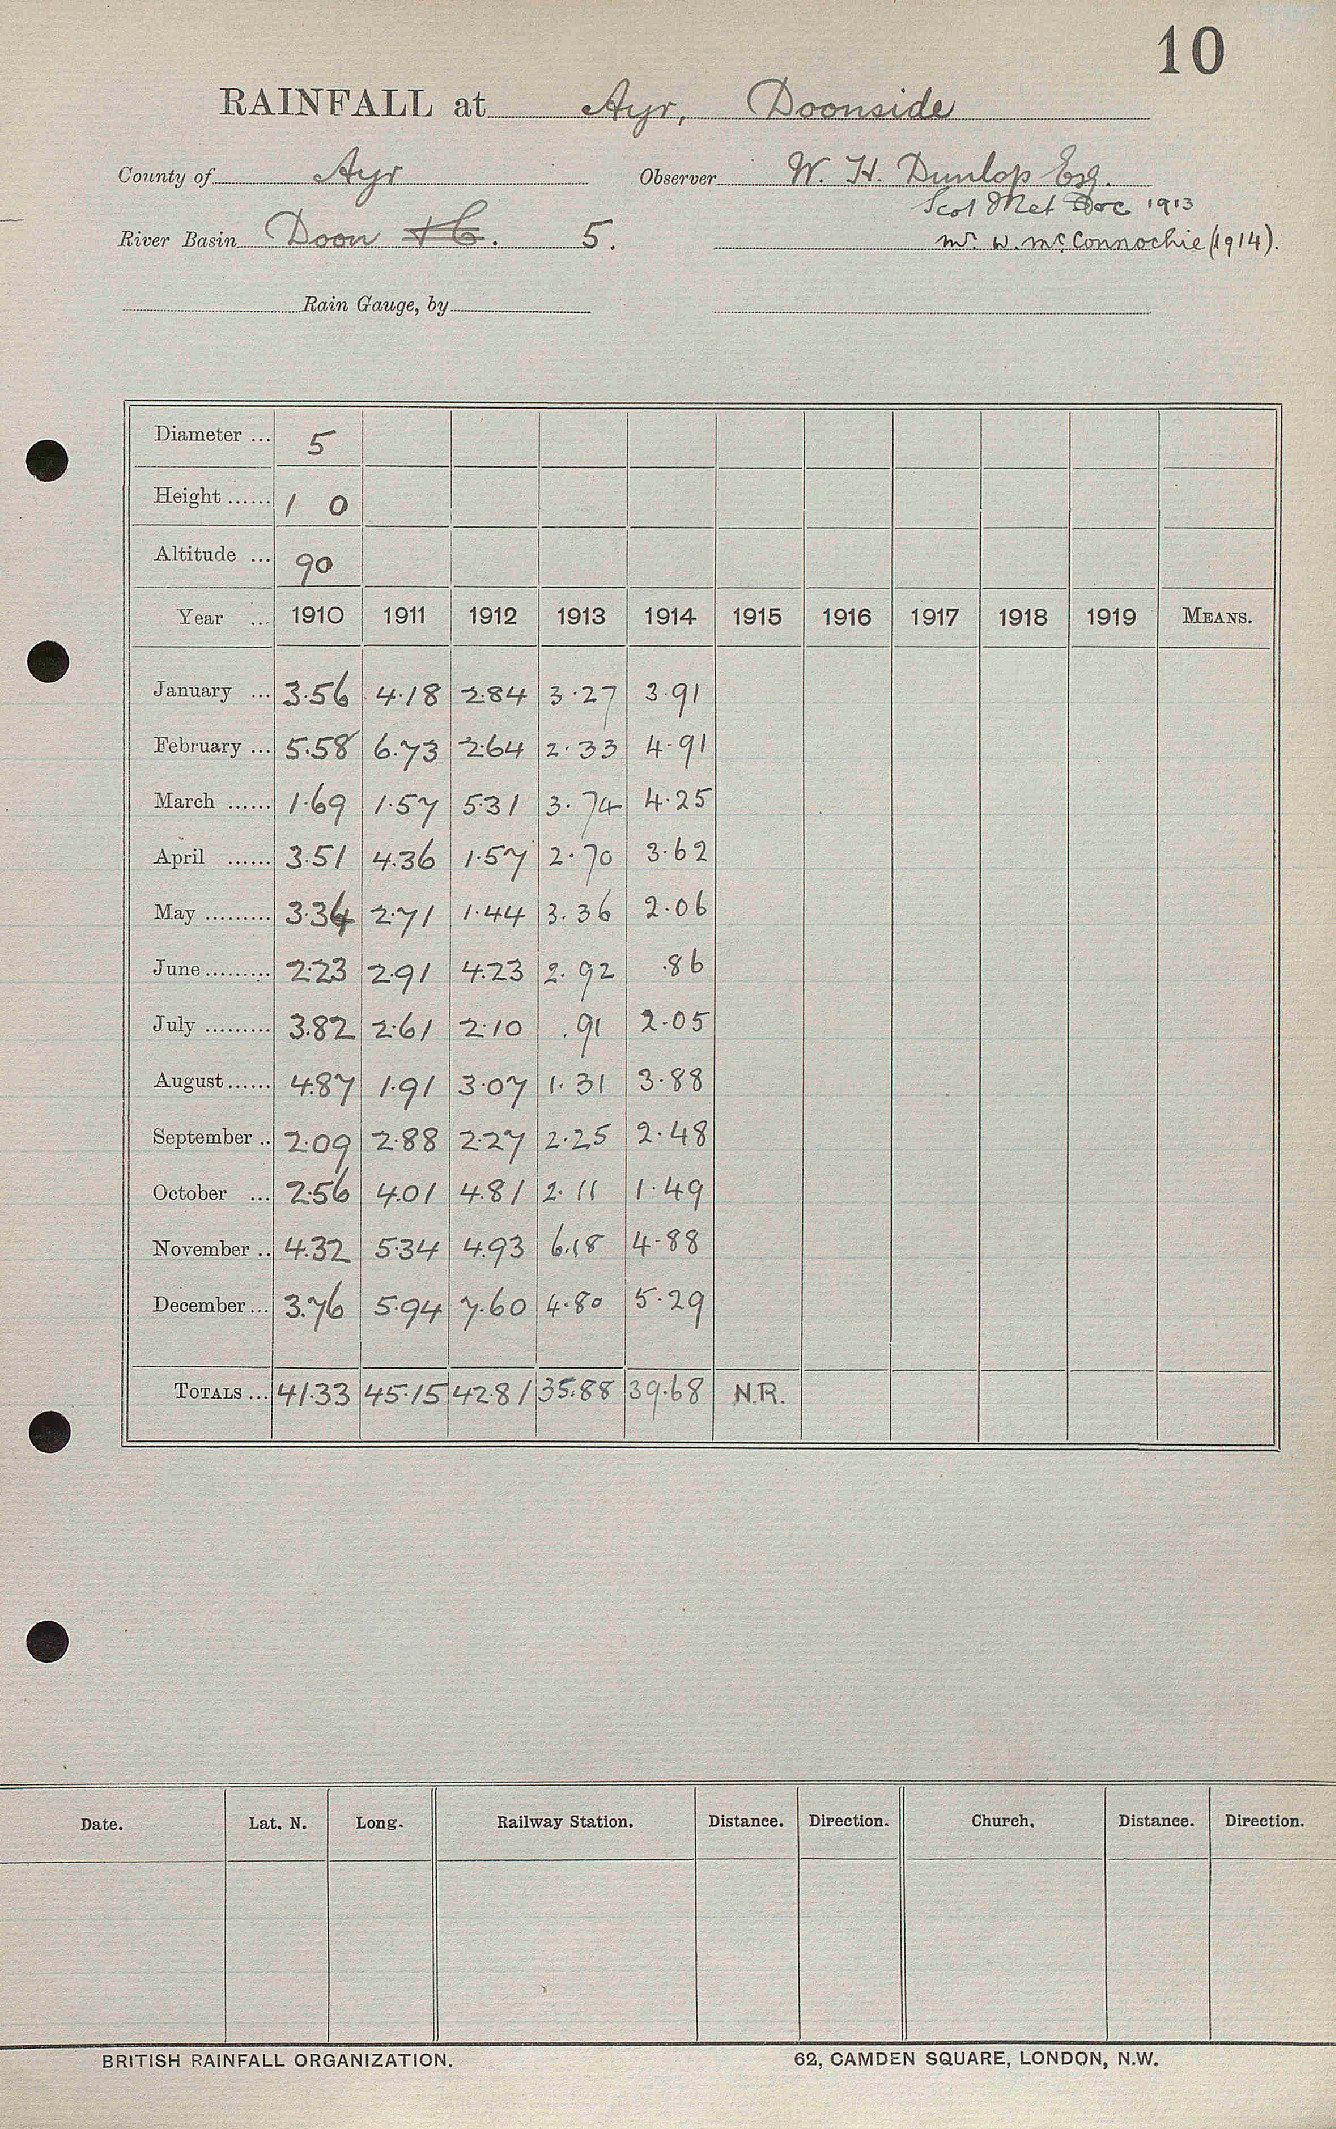 10
RAINFALL at Ayr, Doonside
County of Ayr Observer W. H. Dunlop Esq.
Scot Met Soc 1913
River Basin Doon & C. 5. Mr. W. McConnochie (1914).
Rain Gauge, by
Diameter ... 5
Height ...... 1 0
Altitude ... 90
Year ... 1910 1911 1912 1913 1914 1915 1916 1917 1918 1919 MEANS.
January ... 3.56 4.18 2.84 3.27 3.91
February ... 5.58 6.73 2.64 2.33 4.91
March ...... 1.69 1.57 5.31 3.74 4.25
April ...... 3.51 4.36 1.57 2.70 3.62
May ......... 3.34 2.71 1.44 3.36 2.06
June ......... 2.23 2.91 4.23 2.92 .86
July ......... 3.82 2.61 2.10 .91 2.05
August ...... 4.87 1.91 3.07 1.31 3.88
September .. 2.09 2.88 2.27 2.25 2.48
October ... 2.56 4.01 4.81 2.11 1.49
November .. 4.32 5.34 4.93 6.18 4.88
December ... 3.76 5.94 7.60 4.80 5.29
TOTALS ... 41.33 45.15 42.81 35.88 39.68 N.R.
Date. Lat. N. Long. Railway Station. Distance. Direction. Church. Distance. Direction.
BRITISH RAINFALL ORGANIZATION. 62, CAMDEN SQUARE, LONDON, N.W.